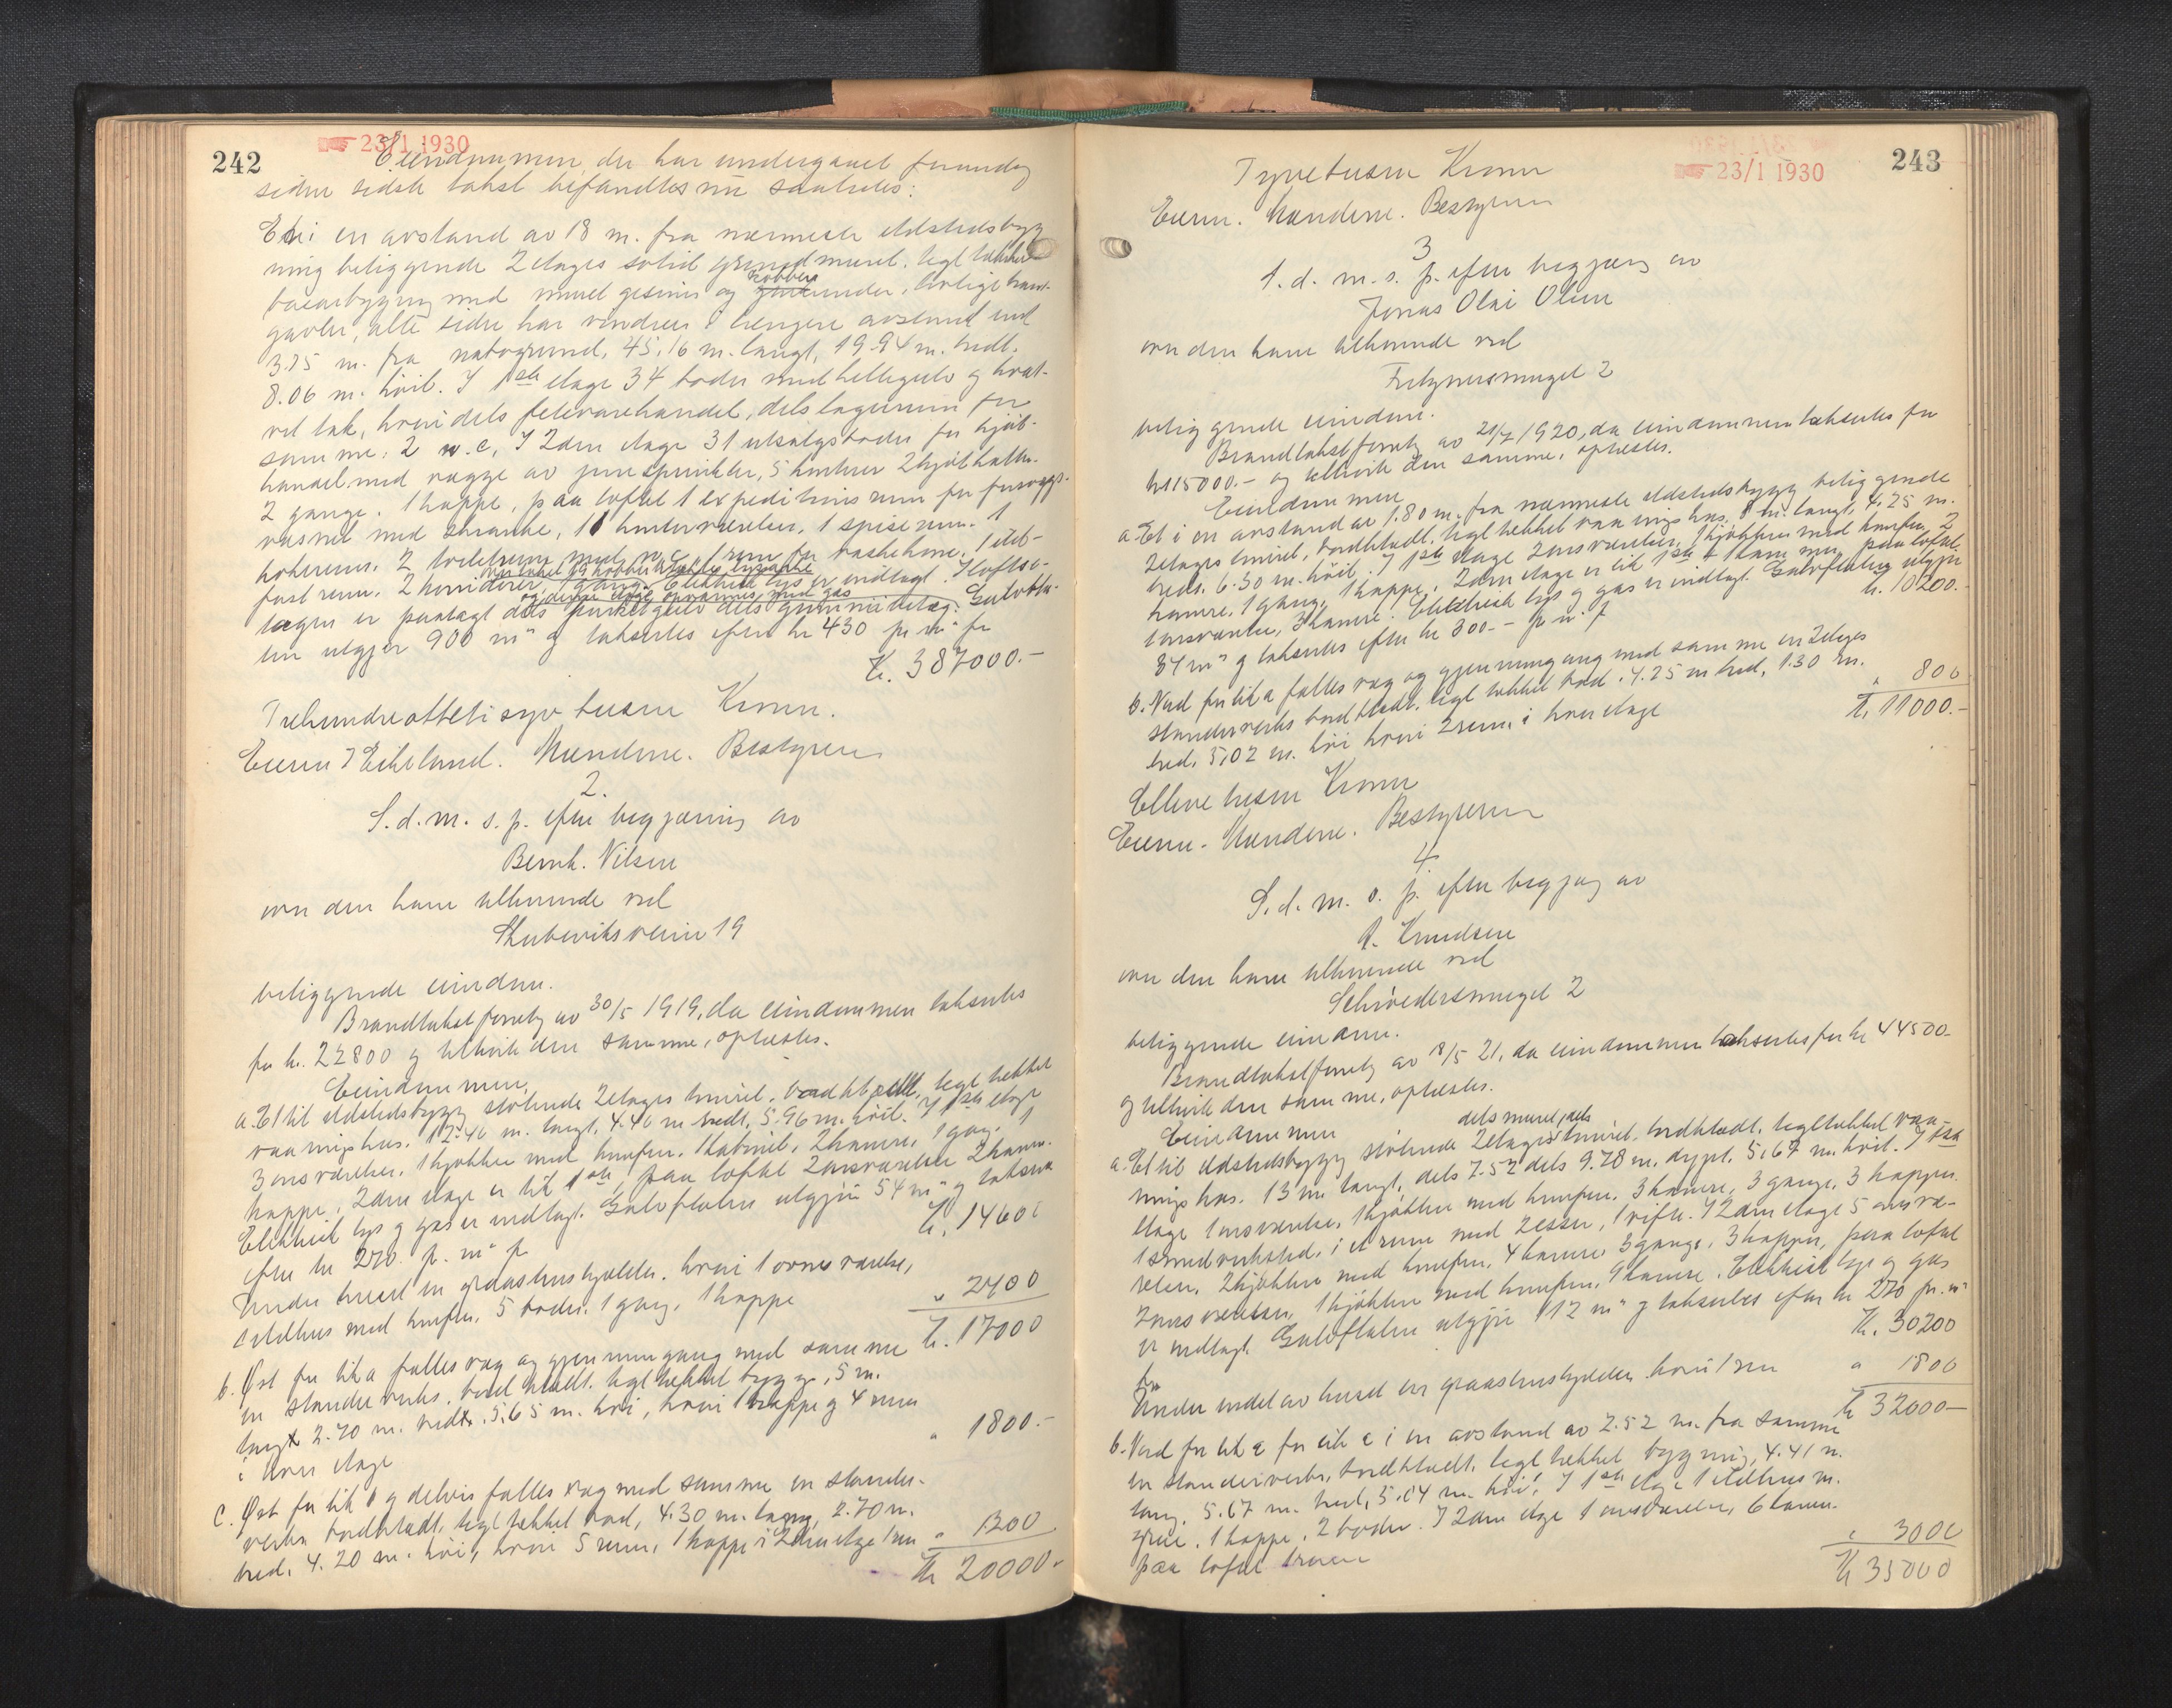 242
23/1 1930
Eiendommen, der har undergaaet forandr
siden sidste takst befandtes nu saaledes:
Et i en avstand av 18 m. fra nærmeste ildstedsbyg
ning beliggende 2 etages solid grundmuret, tegltækket
basarbygning med muret gesims og kobber render,
gavler, alle sider har vinduer i længere avstand end
3.75 m. fra nabogrund, 45,16 m. langt, 19.94 m. bredt,
8.06 m. høit. I 1ste etage 34 boder med hellegulv og hvæl-
vet tak, hvori dels fetevarehandel, dels lagerrum for
samme, 2 w.c, I 2den etage 31 utsalgsboder for kjøt-
handel med vægge av jernsprinkler, 5 kontorer 2 kjøthaller
2 gange. 1 trappe, paa loftet 1 expeditionsrum for
væsnet med skranke, 11 kontorværelser, 1 spiserum 1
2 toiletrum med w.c. 1 rum for vaskekone, 1
rum. 2 korridorer 1 gang. Elektrisk lys er indlagt. I loftse-
over taket 19 kobberklædte lyskapper
og denne etage opvarmes med gas
tagen er paalagt dels parketgulv dels gummibelæg. Gulvfla-
ten utgjør 900 m² og takseres efter kr 430 pr m² for
Kr. 387000.-
Trehundreottetisyv tusen Kroner.
Eieren J Eikeland. Mændene. Bestyreren
2.
S. d. m. s. p. efter begjæring av
Bernh. Nilsen
over den ham tilhørende ved
Skuteviksveien 19
beliggende eiendom.
Brandtakstforretn av 30/5 1919, da eiendommen takseres
for kr. 22800 og tilhørte den samme, oplæstes.
Eiendommen
a. Et til ildstedsbygg støtende 2 etages tømret, bordklædt, tegltækket
vaaningshus. 12.40 m. langt, 4.40 m bredt, 5.96 m. høit. I 1ste etage
3 ovnsværelser, 1 kjøkken med komfur, 1 kabinet, 2 kamre, 1 gang, 1
trappe. 2den etage er lik 1ste, paa loftet 2 ovnsværelser 2 kamre.
Elektrisk lys og gas er indlagt. Gulvflaten utgjør 54 m² og takseres
efter kr 270 p. m² for
Kr. 14600
Under huset en graastenskjelder, hvori 1 ovnsværelse,
1 ildhus med komfur, 5 boder, 1 gang, 1 trappe
" 2400
Kr. 17000
b. Øst for lit a fælles væg og gjennemgang med samme
en standerverks, bordklædt, tegltækket bygge, 5 m.
langt 2.70 m. bredt, 5,65 m. høi, hvori 1 trappe og 4 rum
i hver etage
" 1800.-
c. Øst for lit b og delvis fælles væg med samme en stander-
verks bordklædt, tegltækket bod, 4.30 m. lang, 2.70 m.
bred, 4.20 m. høi, hvori 5 rum, 1 trappe i 2den etage 1 rum
" 1200
Kr 20000.-
243
23/1 1930
Tyvetusen Kroner
Eieren. Mændene. Bestyreren
3
S. d. m. s. p. efter begjæring av
Jonas Olai Olsen
over den ham tilhørende ved
Fritznersmuget 2
beliggende eiendom.
Brandtakstforretn av 21/7 1920, da eiendommen takseres for
kr 15000.- og tilhørte den samme, oplæstes.
Eiendommen
a. Et i en avstand av 1.80 m. fra nærmeste ildstedsbygg beliggende
2 etages tømret, bordklædt, tegltækket vaaningshus, 8 m. langt, 4.25 m.
bredt, 6.30 m. høit. I 1ste etage 2 ovnsværelser, 1 kjøkken med komfur, 2
kamre, 1 gang, 1 trappe. 2den etage er lik 1ste + 1 kammer, paa loftet
1 ovnsværelse, 3 kamre. Elektrisk lys og gas er indlagt. Gulvflaten utgjør
34 m² og takseres efter kr 300.- p m² f
kr. 10200.-
b. Nord for lit a fælles væg og gjennemgang med samme en 2 etages
standerverks bordklædt, tegltækket bod, 4.25 m bred, 1.30 m.
bred, 5,02 m. høi hvori 2 rum i hver etage
" 800
Kr. 11000.-
Elleve tusen Kroner
Eieren. Mændene. Bestyreren
4.
S. d. m. s. p. efter begjæring av
A. Knudsen
over den ham tilhørende ved
Schrødersmuget 2
beliggende eiendom.
Brandtakstforretn av 18/5 21, da eiendommen takseres for kr 44500.
og tilhørte den samme, oplæstes.
Eiendommen
a. Et til ildstedsbygg støtende 2 etages dels muret, dels tømret, bordklædt, tegltækket vaa-
ningshus. 13 m. langt, dels 7.52 dels 9.78 m. dypt, 5,67 m. høit. I 1ste
etage 1 ovnsværelse, 1 kjøkken med komfur, 3 kamre, 3 gange, 3 trapper
1 smedverksted, i et rum med 2 esser, 1 vifte. I 2den etage 5 ovnsvæ-
relser, 2 kjøkken med komfur, 4 kamre, 3 gange, 3 trapper, paa loftet
2 ovnsværelser, 1 kjøkken med komfur, 9 kamre. Elektrisk lys og gas
er indlagt. Gulvflaten utgjør 112 m² og takseres efter kr 270 pr. m²
for
Kr. 30200
Under endel av huset en graastenskjelder, hvori 1 rum
" 1800
Kr 32000.-
b. Nord for lit a for lit a i en avstand av 2.52 m. fra samme
en standerverks, bordklædt, tegltækket bygning, 4.41 m.
lang, 5.67 m. bred, 5.04 m. høi, I 1ste etage 1 ildhus m.
grue, 1 trappe, 2 boder. I 2den etage 1 ovnsværelse, 6 kamre.
paa loftet 1 rum
" 3000
Kr 35000